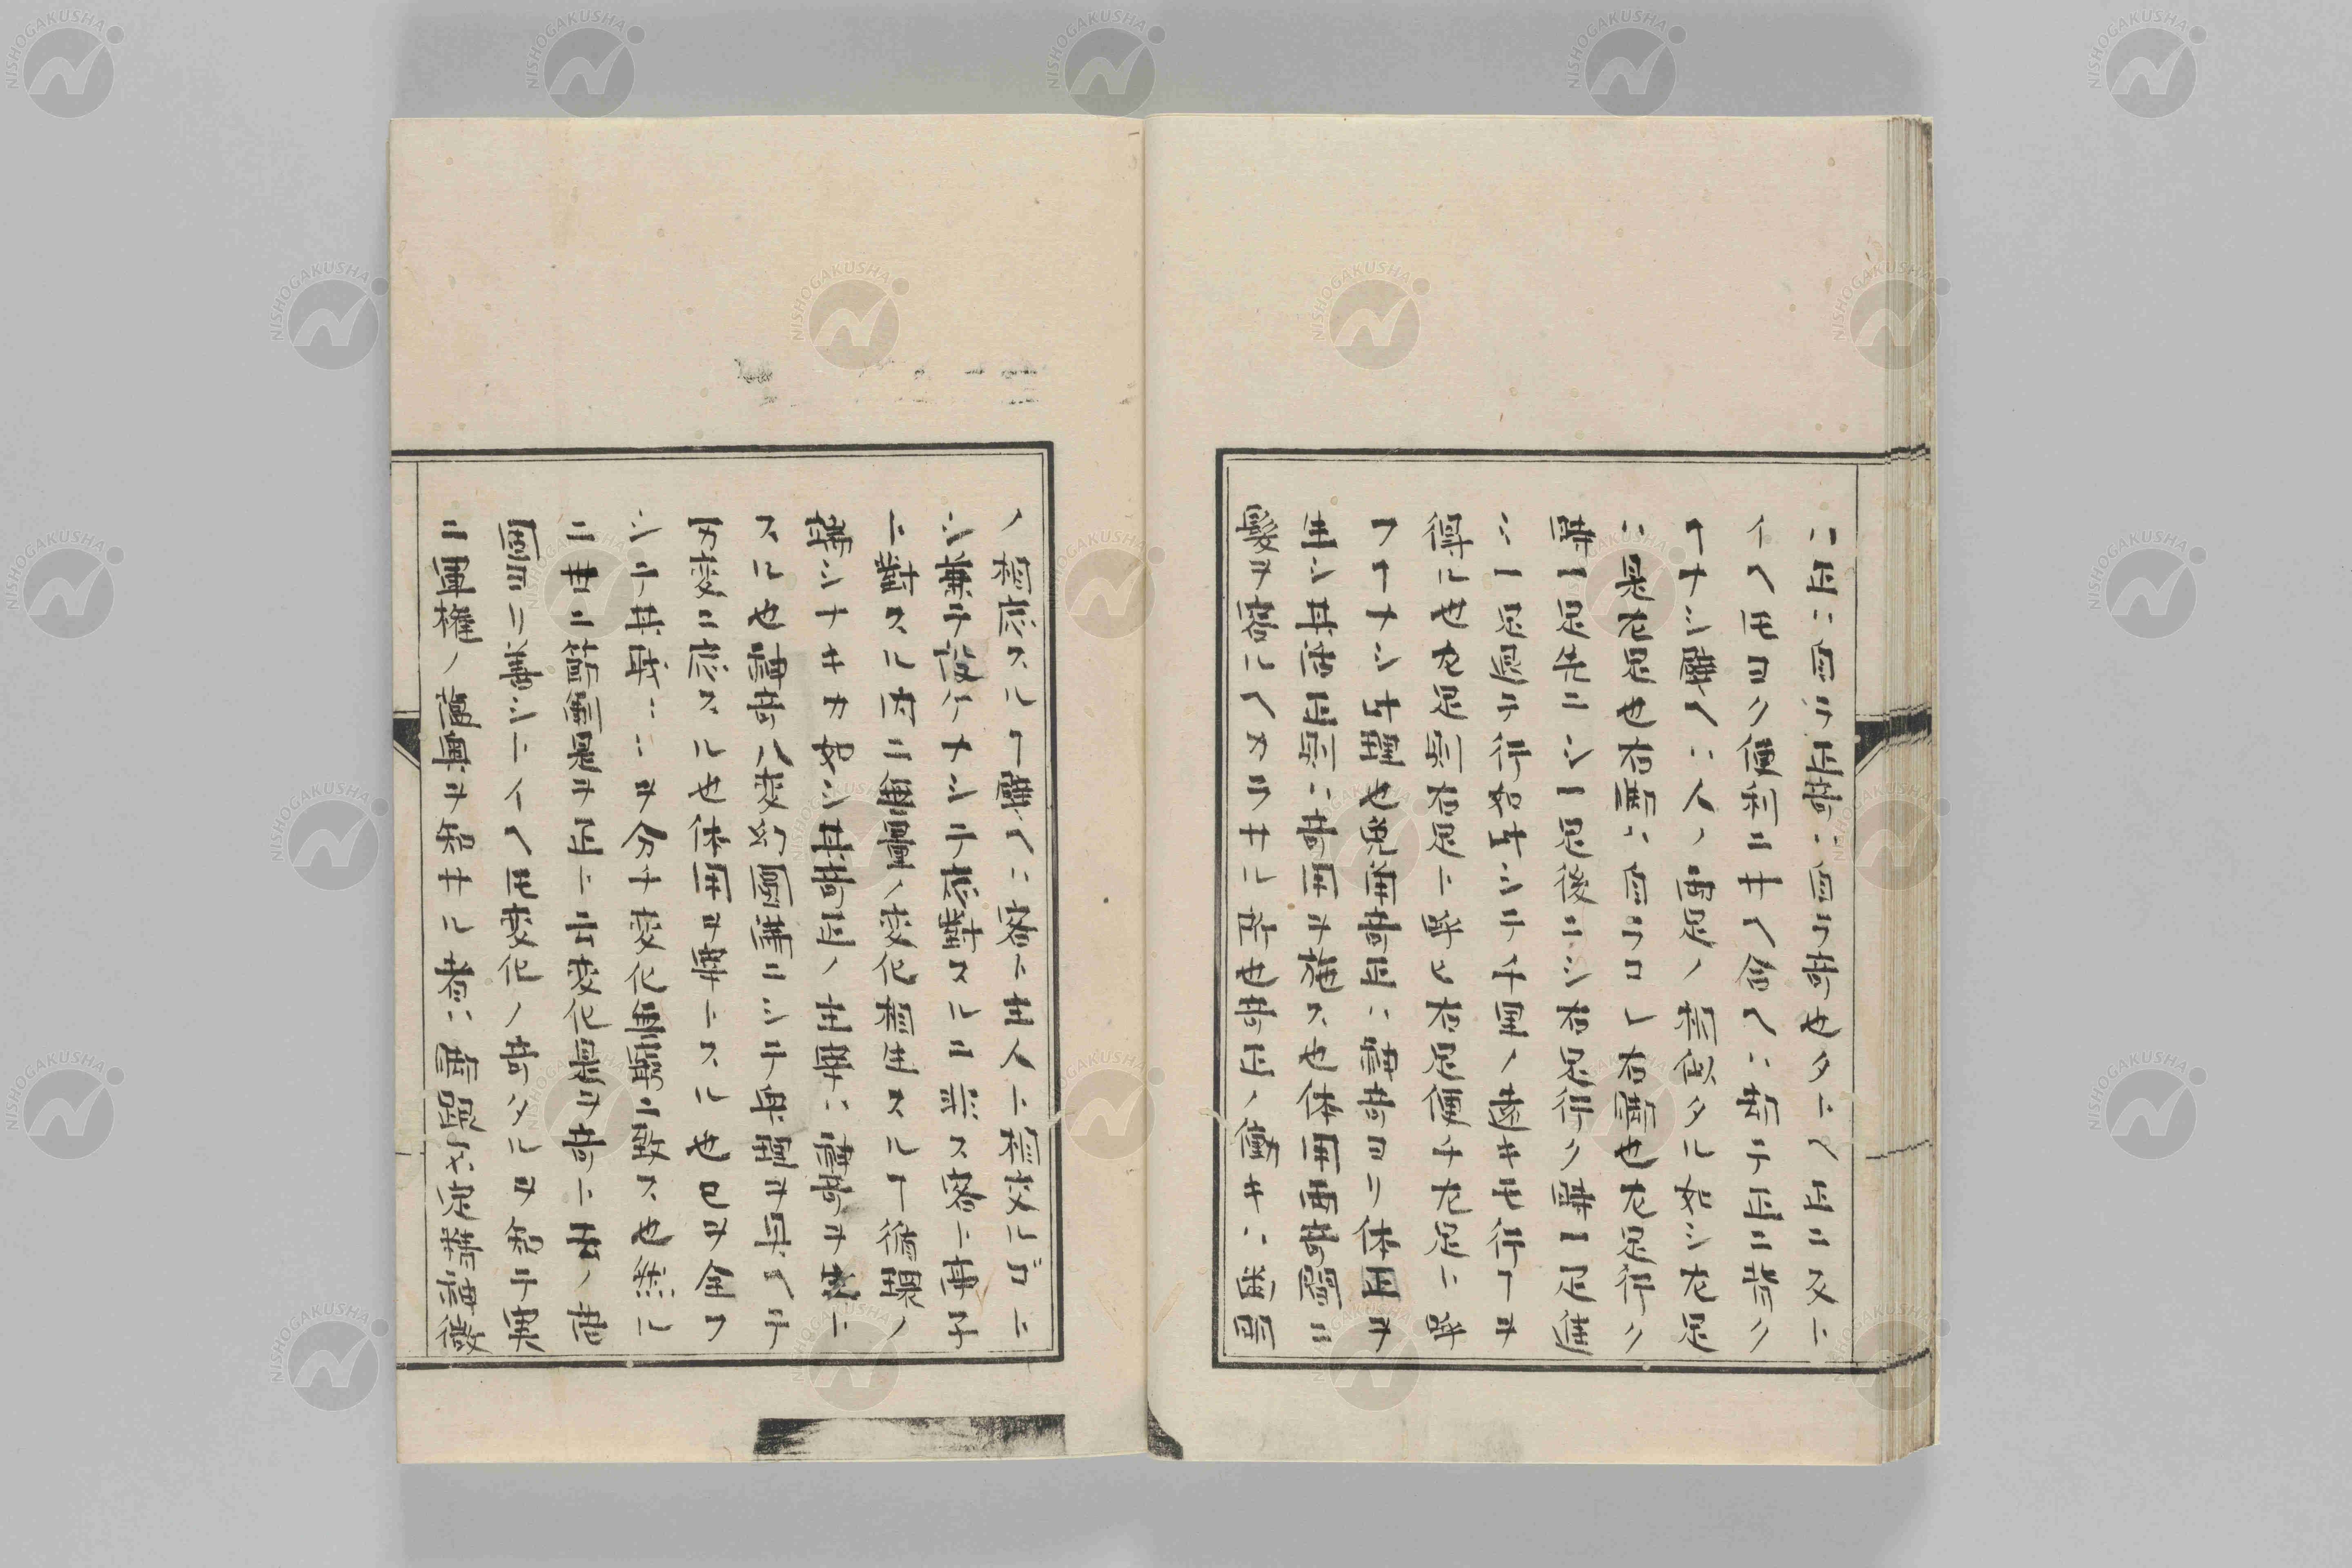 ハ正ハ自ラ正奇ハ自ラ奇也タトヘ正ニ又ト
イヘ𪜈ヨク便利ニサヘ合ヘハ即チ正ニ背ク
ヿナシ譬ヘハ人ノ両足ノ相似タルカ如シ左足
ハ是左足也右脚ハ自ラコレ右脚也左足行ク
時一足先ニシ一足後ニシ右足行ク時一足進
ミ一足退テ行如斗シテ千里ノ遠キモ行ヿヲ
得ル也左足則右足ト畔ヒ右足便チ左足ニ畔
フヿナシ 理也 奇正ハ諸奇ヨリ休囲ヲ
生シ其 正則ハ奇囲ヲ施ス也休囲両奇間ニ
髪ヲ容ルヘカラサル所也奇正ノ働キハ幽明
ノ相形スルヿ譬ヘハ客ト主人ト相交ルガコト
シ兼テ設ケナシテ形對スルニ非ス客ト 子
ト對スル内ニ無量ノ変化相生スルヿ循環ノ
端ナキカ如シ其奇正ノ世界ハ諸奇ヲ ト
スル也諸奇ハ変幻圓満ニシテ真理ヲ具ヘテ
因変ニ形スル也休囲ヲ無トスル也己ヲ全フ
シテ其 ヲ分チ変化無窮ニ敵ス也然ル
ニ世ニ節制是ヲ正ト云変化是ヲ奇ト ノ書
圖ニ シトイヘ𪜈変化ノ奇タルヲ知テ実
ニ軍権ノ蘊奥ヲ知サル者ハ両眼必定精神微